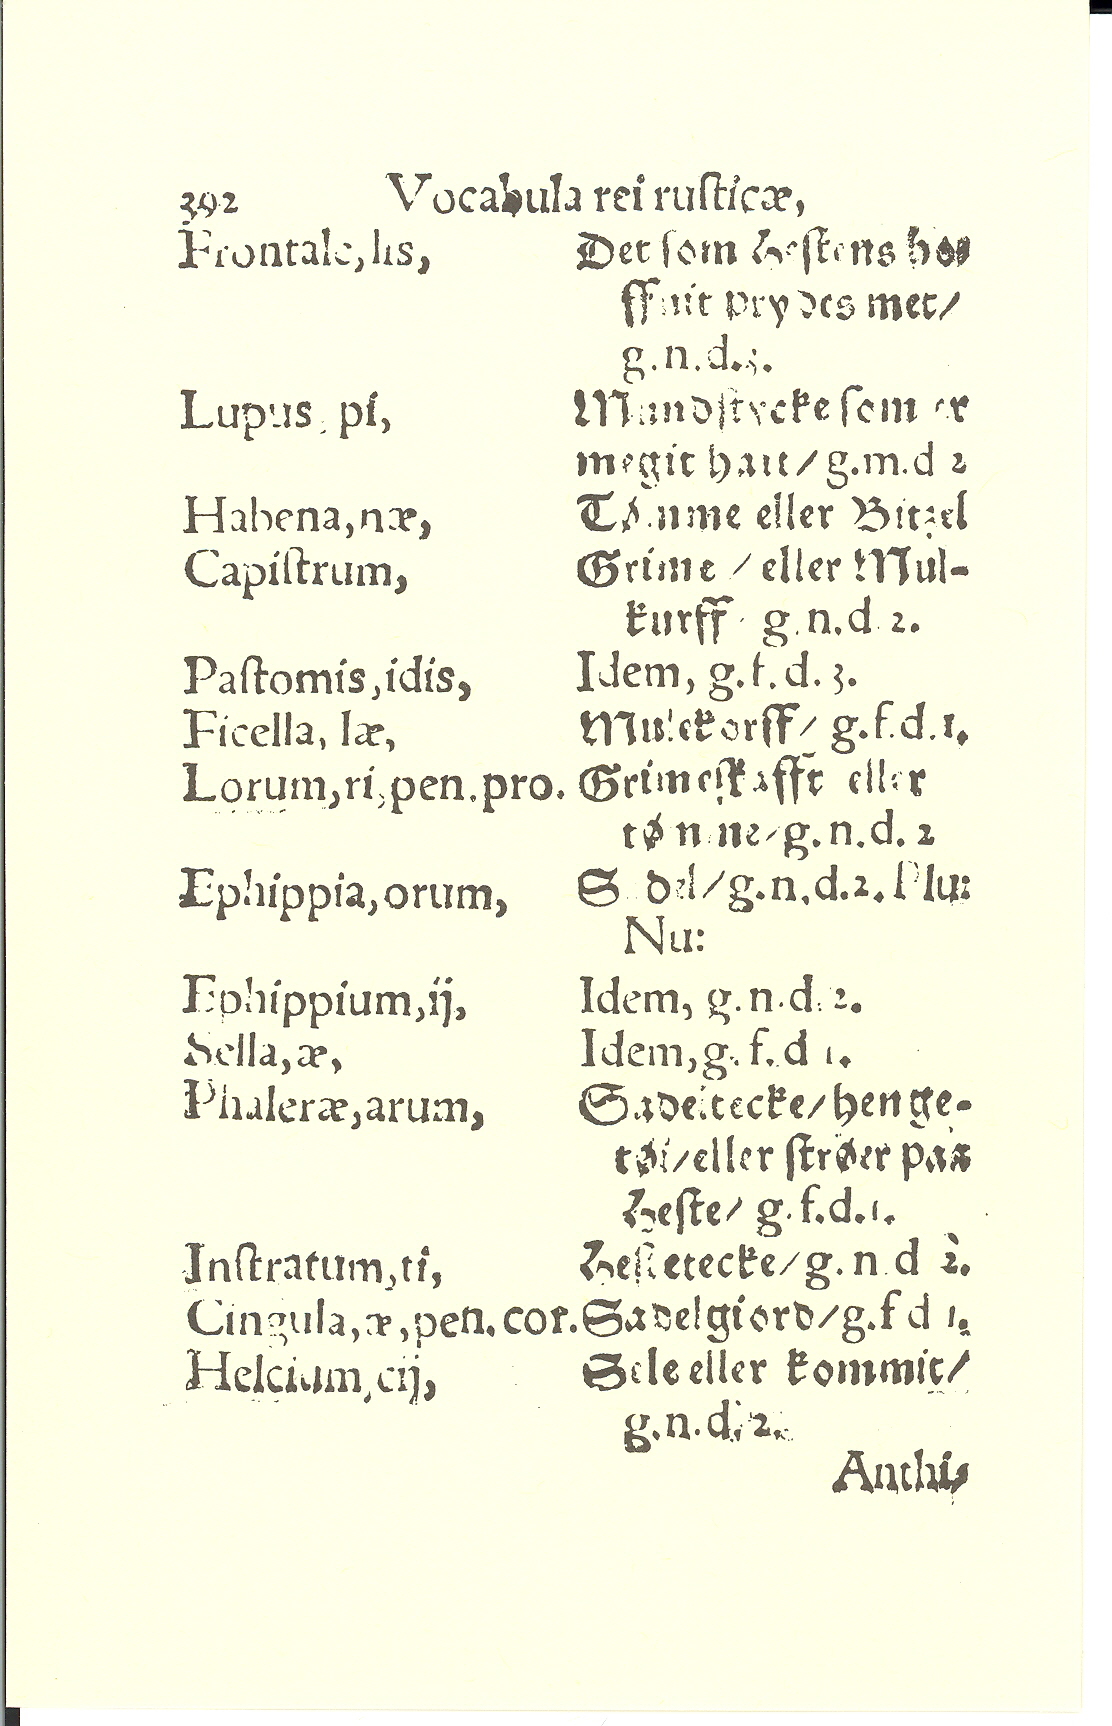 392 Vocabula rei rusticæ,
Frontale, lis, Det som Hestens ho⸗
ffuit prydes met/
g.n.d.3.
Lupus, pi, Mundstycke som er
megit hart/ g.m.d 2
Habena, næ, Tømme eller Bitzel
Capiſtrum, Grime / eller Mul-
kurff g.n.d 2.
Paſtomis, idis, Idem, g.f.d.3.
Ficella, læ, Mulekorff/ g.f.d.1.
Lorum, ri, pen. pro. Grimeſkafft eller
tømme/ g.n.d. 2
Ephippia, orum, Sadel/ g.n.d.2. Plu:
Nu:
Ephippium, ij, Idem, g.n.d. 2.
Sella, æ, Idem, g. f. d 1.
Phaleræ, arum, Sadeltecke/ henge-
tøi/ eller ſtrøer paa
Heſte/ g.f.d.1.
Inſtratum, ti, Heſtetecke/ g.n d 2.
Cingula, æ, pen. cor. Sadelgiord/ g.f d 1.
Helcium, cij, Sele eller kommit/
g.n.d. 2.
Anthi⸗